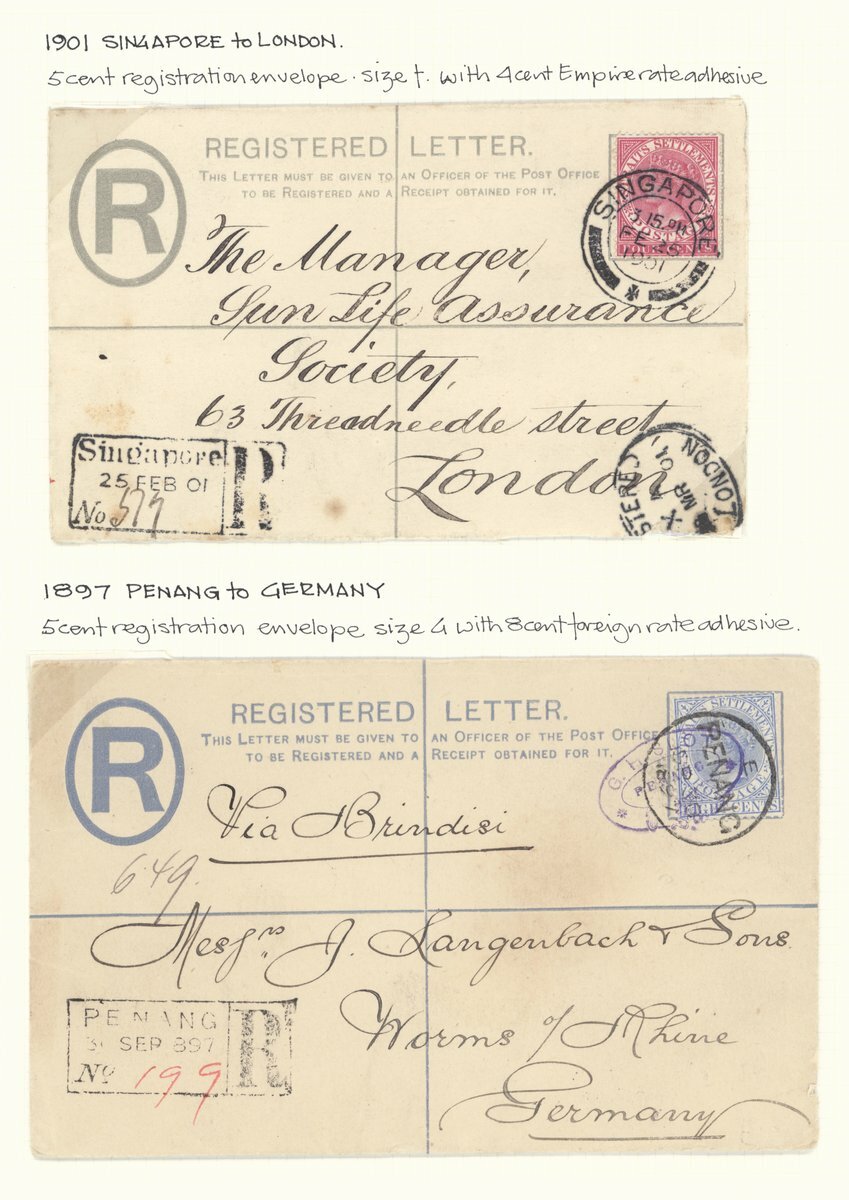 1901 SINGAPORE to LONDON.
5cent registration envelope. size f. with 4cent Empire rate adhesive
REGISTERED LETTER.
THIS LETTER MUST BE GIVEN TO AN OFFICER OF THE POST OFFICE
TO BE REGISTERED AND A RECEIPT OBTAINED FOR IT.
R
STRAITS SETTLEMENTS
POSTAGE
FOUR CENTS
SINGAPORE
3.15.PM
FE 25
1901
The Manager,
Sun Life Assurance
Society,
63 Threadneedle street,
London
Singapore
25 FEB 01
No 577
R
LONDON
MR 01
1897 PENANG to GERMANY
5cent registration envelope size G with 8cent foreign rate adhesive.
REGISTERED LETTER.
THIS LETTER MUST BE GIVEN TO AN OFFICER OF THE POST OFFICE
TO BE REGISTERED AND A RECEIPT OBTAINED FOR IT.
R
SETTLEMENTS
POSTAGE
CENTS
PENANG
Via Brindisi
649.
Messrs J. Langenbach & Sons.
Worms o/Rhine
Germany
PENANG
30 SEP 897
No 199
R